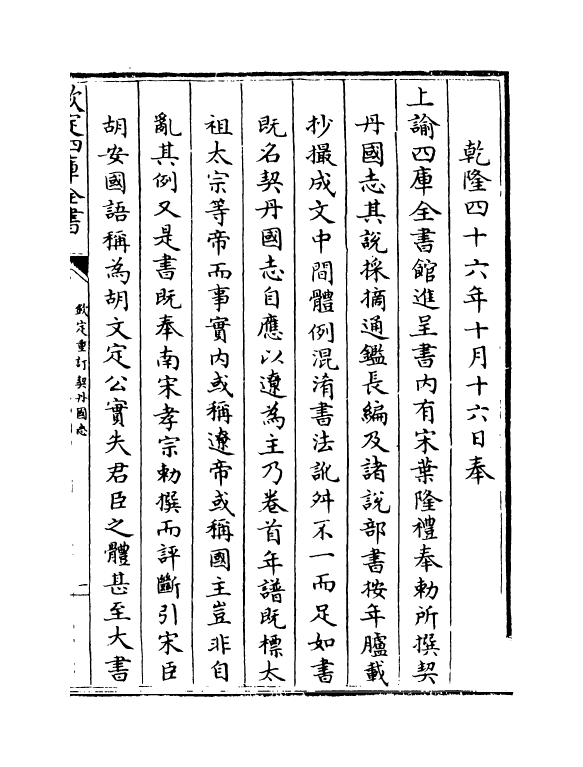 乾隆四十六年十月十六日奉
上諭四庫全書館進呈書内有宋葉隆禮奉勅所撰契
丹國志其說採摘通鑑長編及諸說部書按年臚載
抄撮成文中間體例混淆書法訛舛不一而足如書
既名契丹國志自應以遼為主乃卷首年譜既標太
祖太宗等帝而事實内或稱遼帝或稱國主豈非自
亂其例又是書既奉南宋孝宗勅撰而評斷引宋臣
胡安國語稱為胡文定公實失君臣之體甚至大書
欽定四庫全書
欽定重訂契丹國志